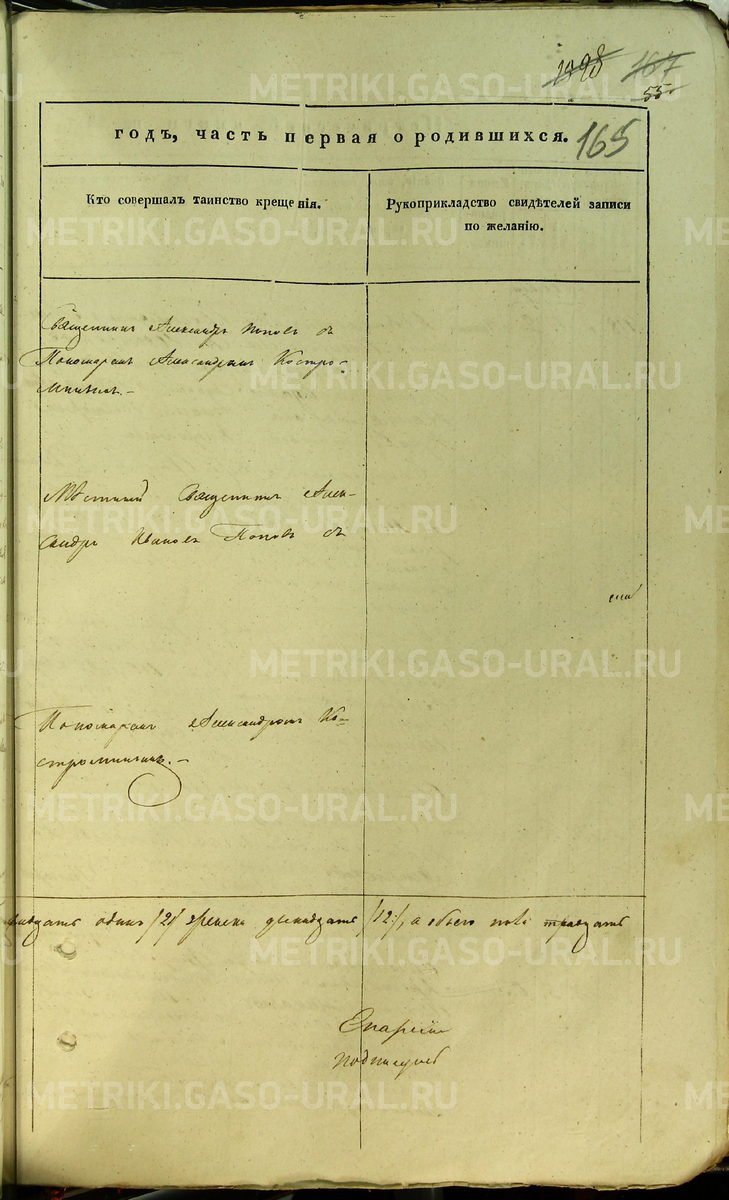 1398 167
55
годъ, часть первая о родившихся. 165
Кто совершалъ таинство крещенія.
Рукоприкладство свидѣтелей записи
по желанію.
Священникъ Александръ Поповъ съ
Пономаремъ Александромъ Костро-
минымъ. –
Мѣстный Священникъ Алек-
сандръ Ивановъ Поповъ съ
Пономаремъ Александромъ Ко-
строминымъ. –
одинъ /21/ женска двенадцать /12/, а обоего пола тридцать
METRIKI.GASO-URAL.RU